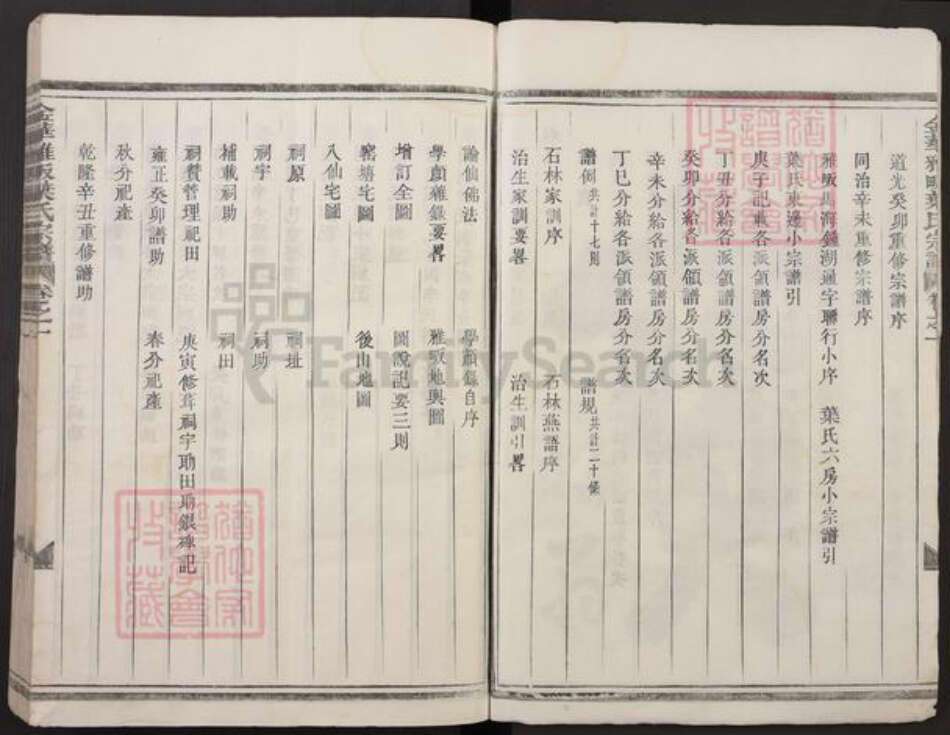 道光癸卯重修宗譜序
同治辛未重修宗譜序
雅畈馬海鍾湖通字聯行小序 葉氏六房小宗譜引
葉氏東邊小宗譜引
庚子記載各派領譜房分名次
丁丑分給各派領譜房分名次
癸卯分給各派領譜房分名次
辛未分給各派領譜房分名次
丁巳分給各派領譜房分名次
譜例共計十七則 譜規共計二十條
石林家訓序 石林燕語序
治生家訓要畧 治生訓引畧
論仙佛法 學顏錄自序
學顏雜錄要畧 雅畈地輿圖
增訂全圖 圖說記要三則
窰塘宅圖 後山地圖
八仙宅圖
祠原 祠址
祠宇 祠助
補載祠助 祠田
祠費管理祀田 庚寅修葺祠宇助田助銀碑記
雍正癸卯譜助 春分祀產
秋分祀產
乾隆辛丑重修譜助
金華雅畈葉氏宗譜 卷之一
FamilySearch